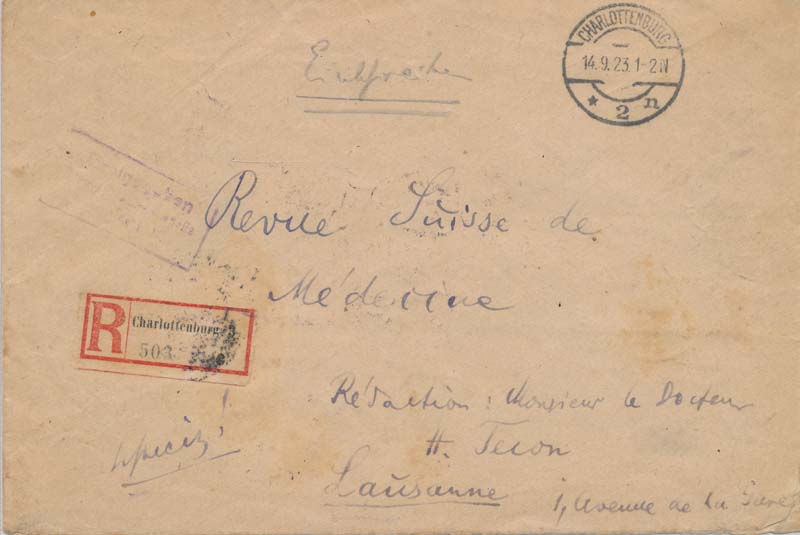 Einschreiben
CHARLOTTENBURG
14.9.23.1-2N
* 2 n
Revue Suisse de
Médecine
R
Charlottenburg
503
Rédaction : Monsieur le Docteur
H.
Lausanne
1, Avenue de la Gare